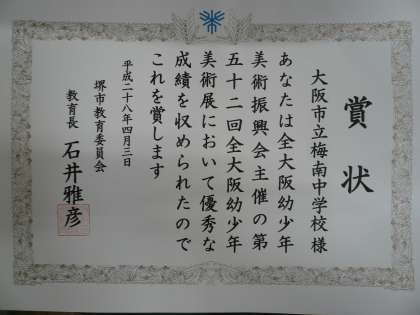 賞状
大阪市立梅南中学校様
あなたは全大阪幼少年
美術振興会主催の第
五十二回全大阪幼少年
美術展において優秀な
成績を収められたので
これを賞します
平成二十八年四月三日
堺市教育委員会
教育長 石井雅彦